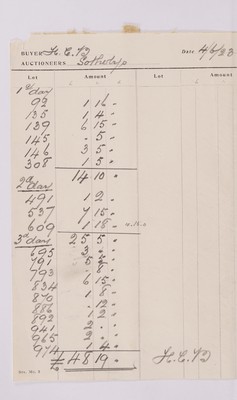 BUYER
Date 4/6/23
AUCTIONEERS Sotheby's
Lot Amount Lot Amount
1st day
92 1 16 -
135 1 4 -
139 6 15 -
145 - 5 -
146 3 5 -
308 1 5 -
14 10 -
2d day
491 1 2 -
537 7 15 -
609 1 18 -
3d day 25 5 -
695 3 - -
791 5 5 -
793 - 8 -
834 6 15 -
870 1 8 -
886 - 12 -
892 1 2 -
941 2 - -
965 2 - -
974 1 4 -
£ 48 19 -